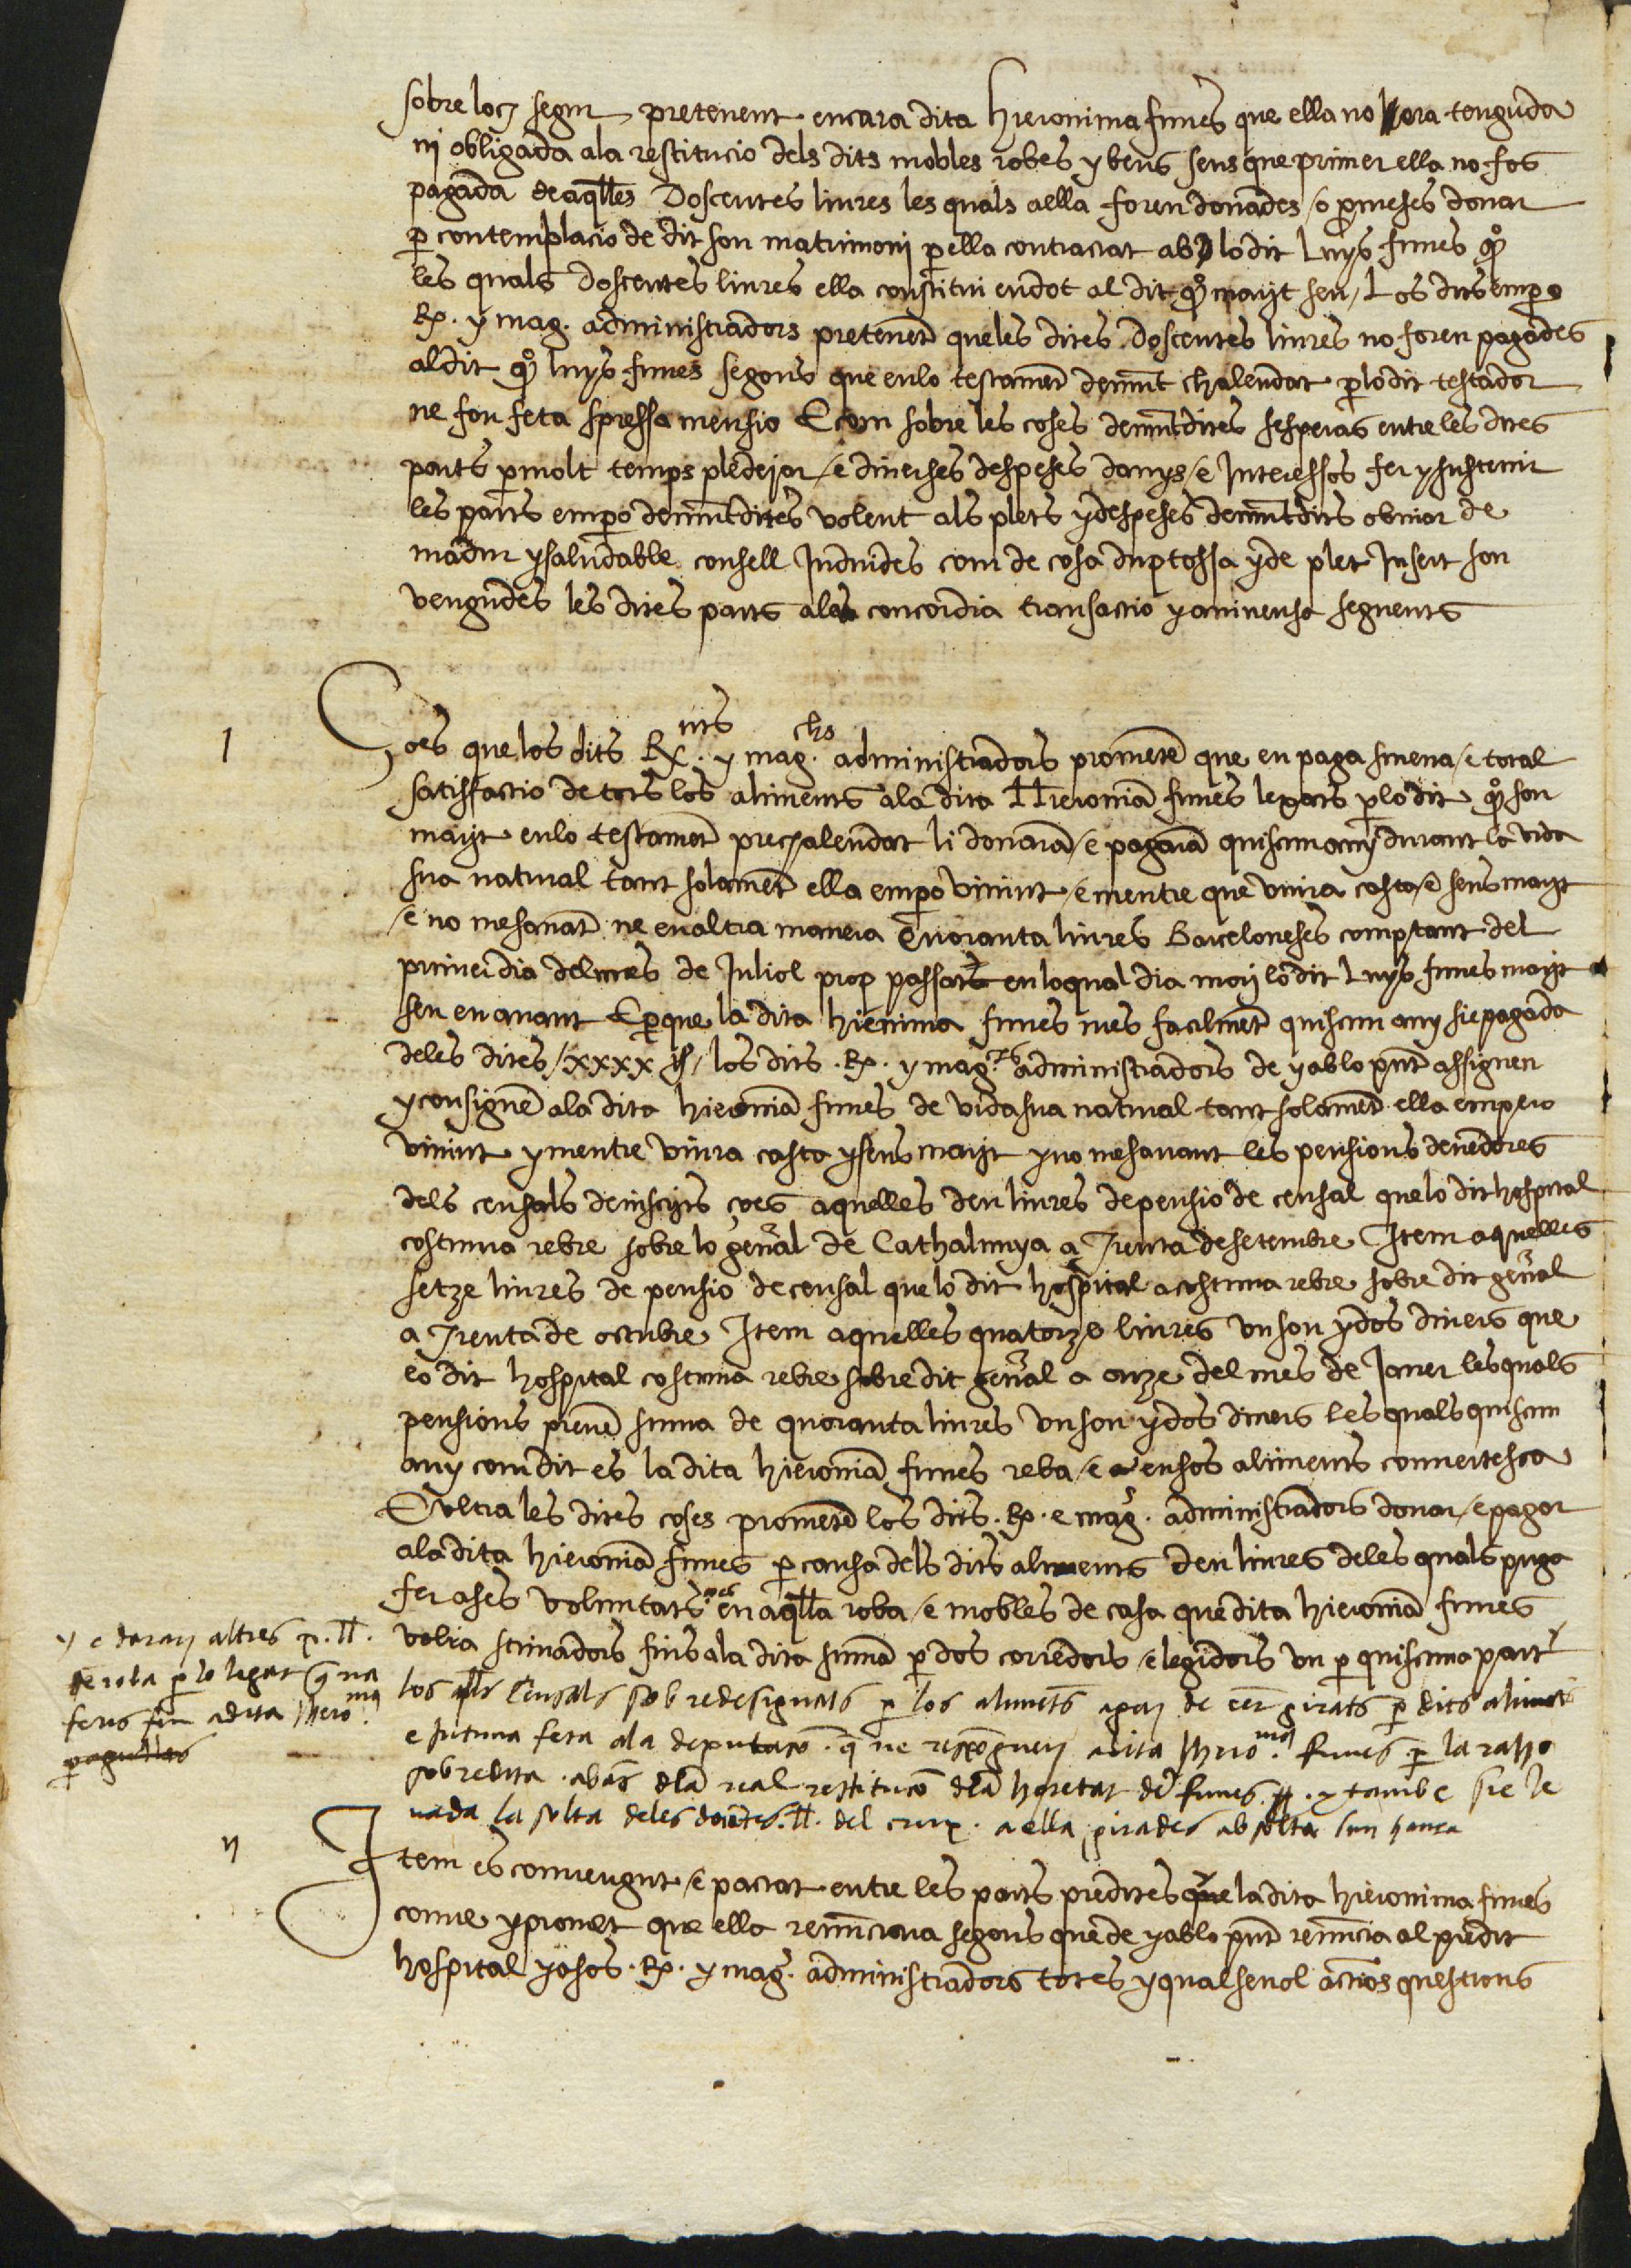 sobre loq segur pretenent encara dita Hieronima funes que ella no era tenguda
ni obligada ala restitucio dels dits mobles robes y bens sens que primer ella no fos
pagada de aqlles Doscentes liures les quals a ella foren donades / o pmeses donar
p contemplacio de dit son matrimoni p ella contractat ab lo dit Luys funes qº
les quals doscentes liures ella constitui en dot al dit qº marit seu / Los dits empo
Rx. y mag. administradors pretenent que les dites doscentes liures no foren pagades
al dit qº luys funes segons que en lo testament demunt chalendat plo dit testador
ne fon feta spressa mensio E com sobre les coses demuntdites sesperas entre les dites
parts p molt temps pledejar / e diuerses despeses danys / e Interessos fer y sustenir
les parts empo demuntdites volent als plets y despeses demuntdits obuiar de
madur y saludabble consell Induides com de cosa duptossa y de plet Insert son
vengudes les dites parts ala concordia transactio y auinensa seguents
1
Ço es que los dits Rx.nts y mag.chs administradors prometen que en paga smena / e total
satisfactio de tots los aliments ala dita Hieronima funes lexats plo dit qº son
marit en lo testament precalendat li donaran / e pagaran quiscun any durant la vida
sua natural tant solament ella empo viuint / e mentre que viuira casta / e sens marit
/ e no mesauant ne en altra manera Quoranta liures Barceloneses comptant del
primer dia del mes de Juliol prop passat en lo qual dia mori lo dit Luys funes marit
seu en auant E pque la dita hieronima funes mes facilment quiscun any sie pagada
de les dites / xxxx ll / los dits . Rx. y mag.chs administradors de y ab lo pnt assignen
y consignen ala dita hieronima funes de vida sua natural tant solament ella empero
viuint y mentre viura casta y sens marit y no mesauant les pensions deuedores
dels censals deuiscrits ço es aquelles deu liures de pensio de censal que lo dit hospital
costuma rebre sobre lo general de Cathalunya a Trenta de setembre Item aquelles
setze liures de pensio de censal que lo dit hospital acostuma rebre sobre dit general
a Trenta de octubre Item aquelles quatorze liures vn sou y dos diners que
lo dit hospital costuma rebre sobre dit general a onze del mes de Janer les quals
pensions prenen suma de quoranta liures vn sou y dos diners les quals quiscun
any com dit es la dita hieronima funes reba / e en sos aliments conuertesca
E vltra les dites coses prometen los dits . Rx. e mag. administradors donar / e pagar
ala dita hieronima funes p causa dels dits aliments deu liures de les quals puga
fer a ses voluntats en aqlla roba / e mobles de casa que dita hieronima funes
volra stimadors fins ala dita suma p dos corredors / elegidors vn p quiscuna part
y e daran altres x. ll.
de roba p lo legat q na
feus fin a dita Hiero.ma
los qls censals sobredesignats p los aliments agen de esser girats p dits aliments
e sutuma feta ala deputacio . q ne responguen a dita Hiero.ma funes . p la raho
sobredita . abans dla real restitucio dla heretat de funes . y tambe sie le
uada la solta deles docentes . ll . del crux . a ella girades absolta sen haura
ij
Item es conuengut / e pactat entre les parts predites que la dita hieronima funes
conue y promet que ella renunciara segons que de y ab lo pnt renuncia al predit
hospital y a sos . Rx. y mag. administradors totes y qualseuol actios questions